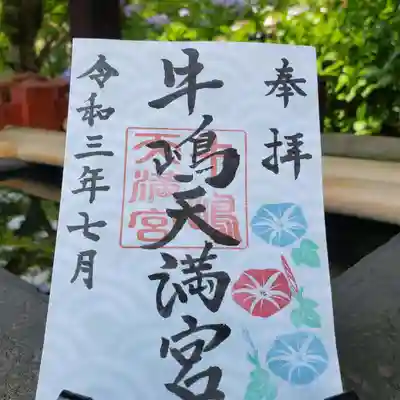 奉拝
牛嶋天満宮
牛嶋
天満宮
令和三年七月